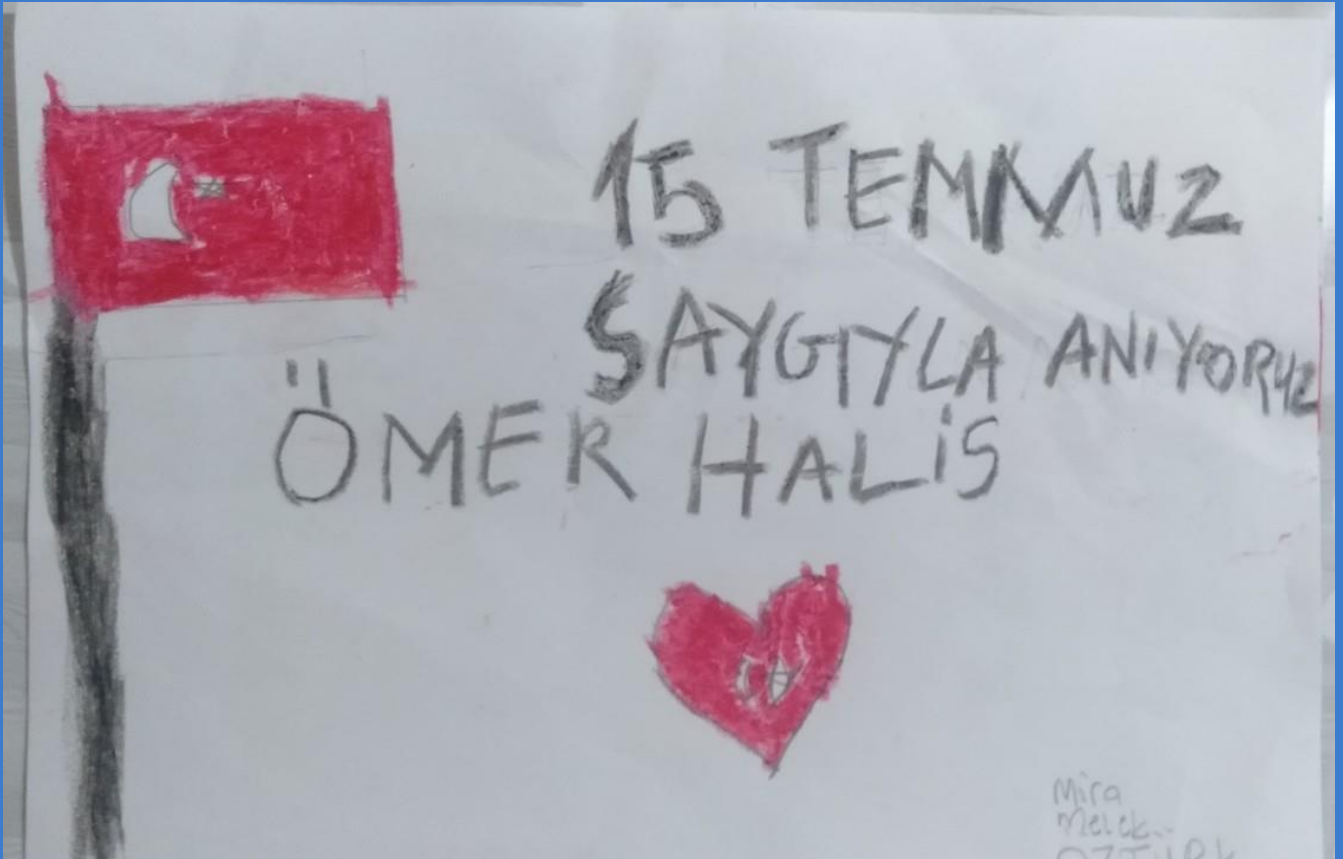 15 TEMMUZ
SAYGIYLA ANIYORUZ
ÖMER HALİS
Mira
Melek
ÖZTÜRK